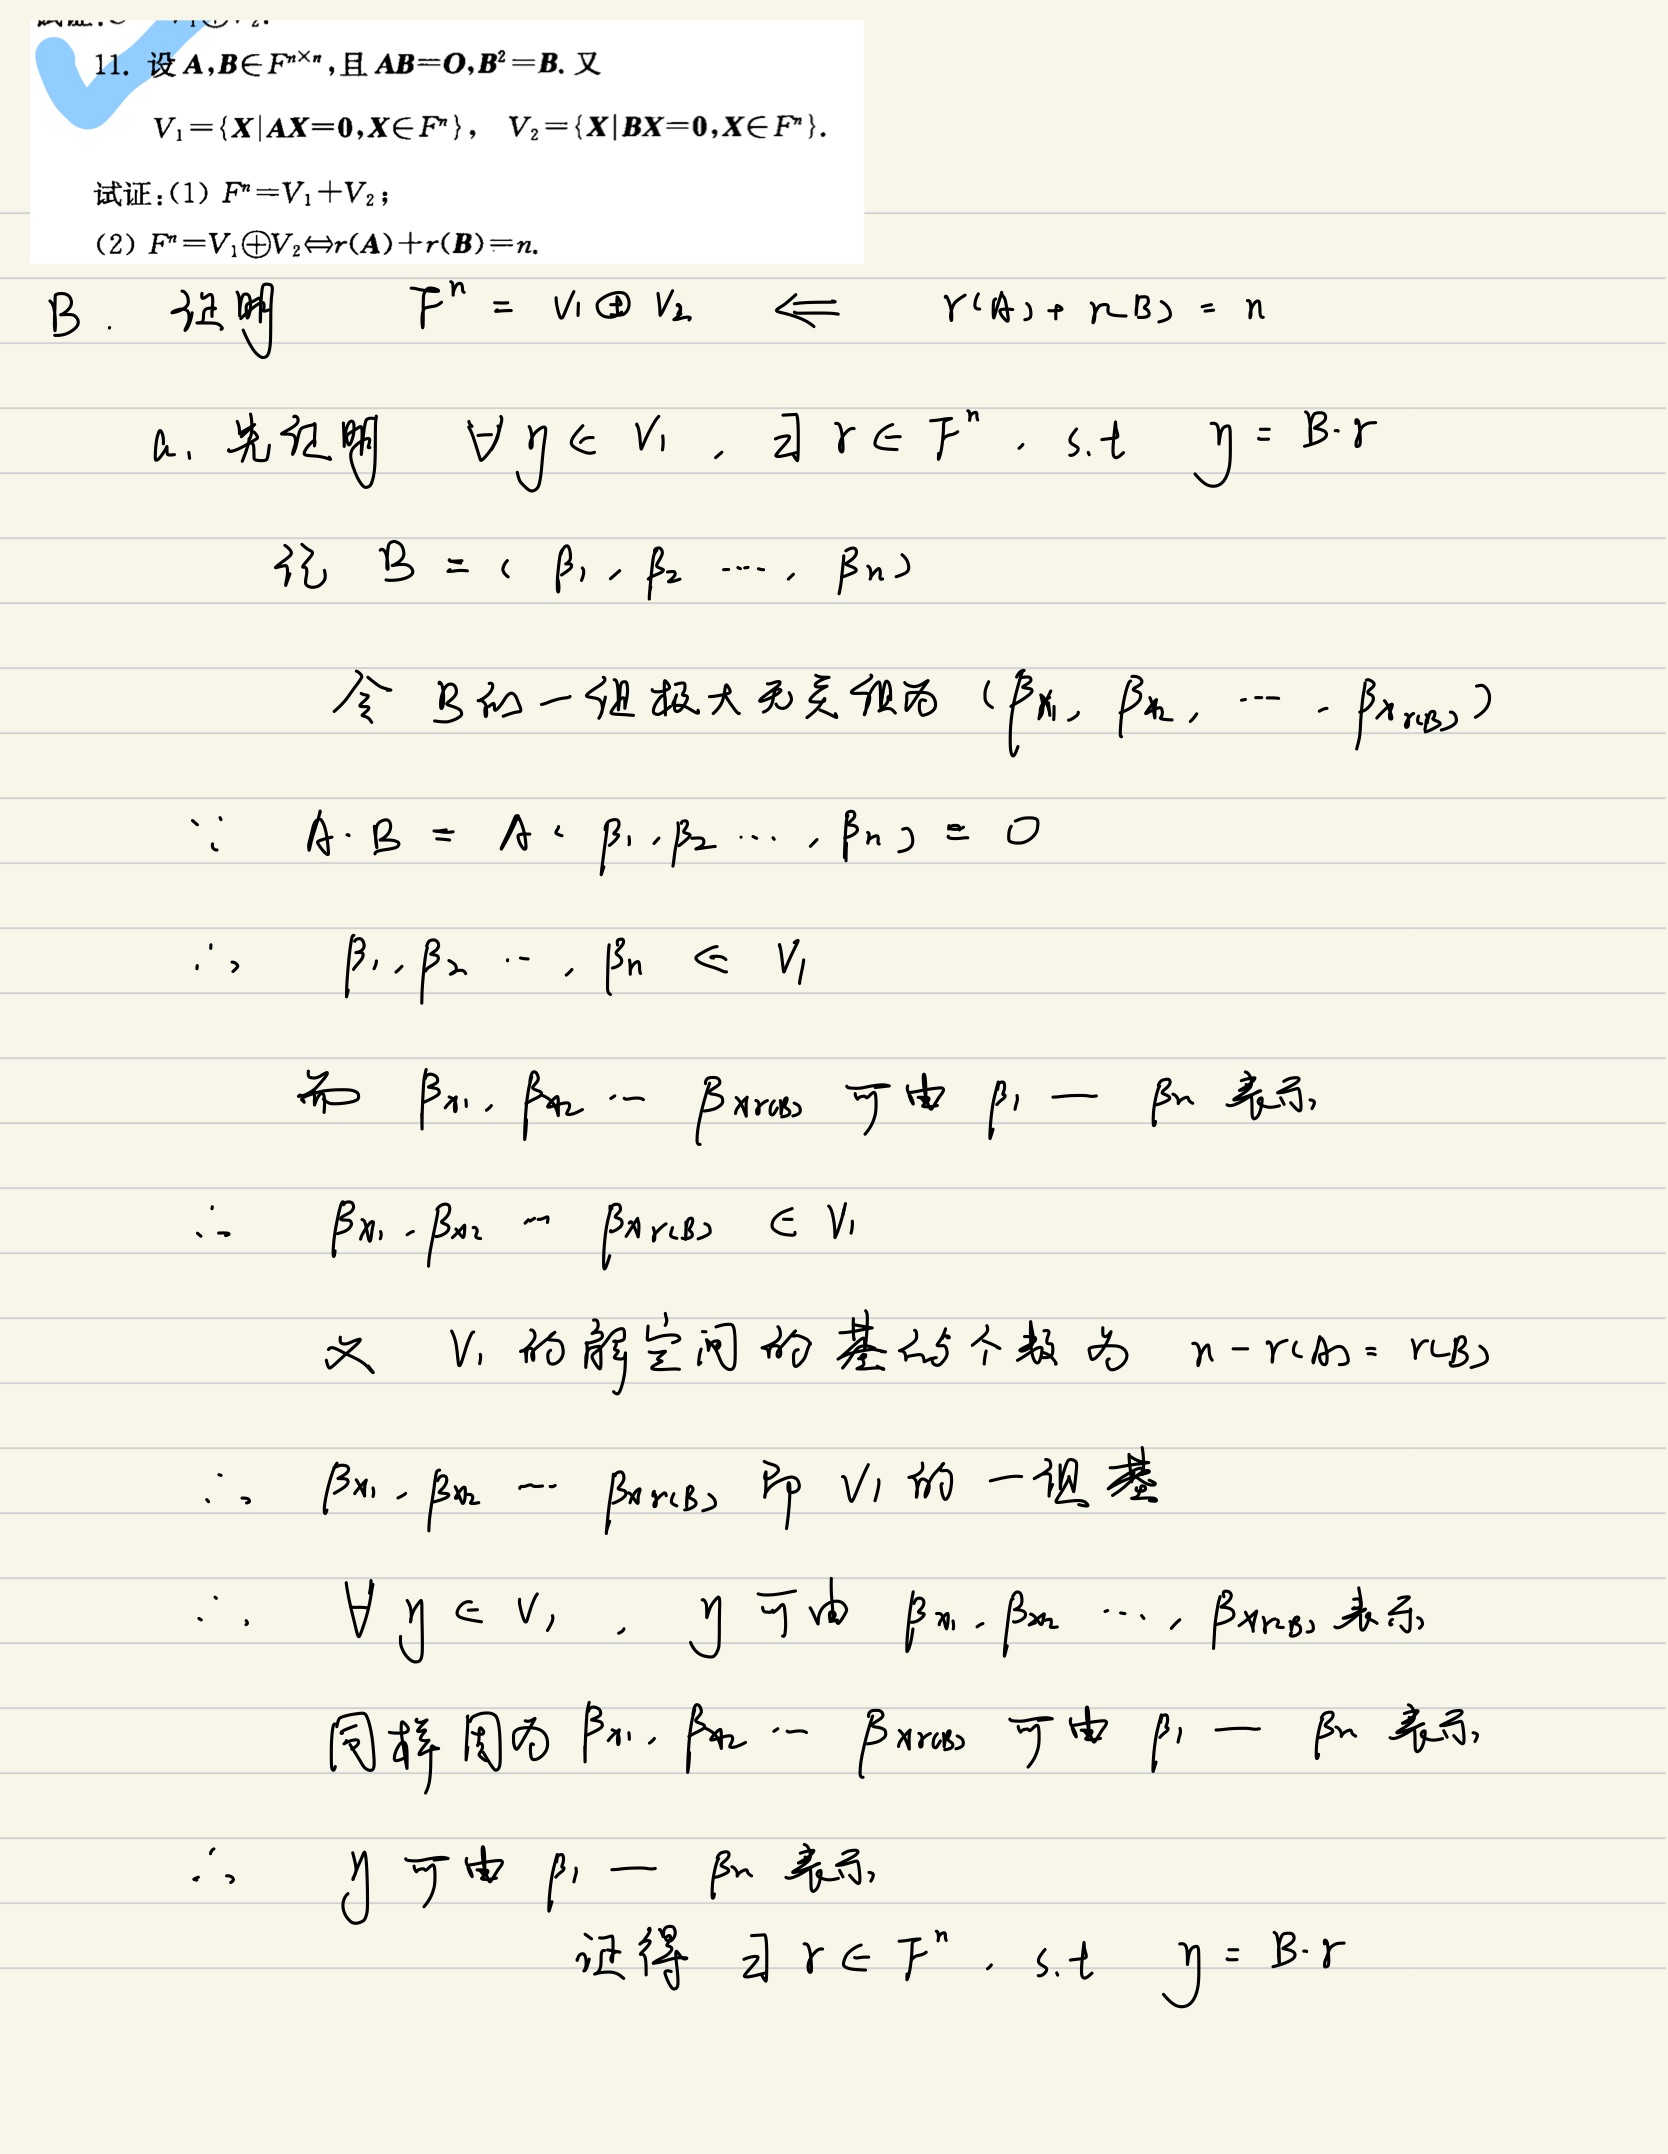 11. 设 A,B∈Fⁿˣⁿ,且 AB=O,B²=B. 又
V₁={X|AX=0,X∈Fⁿ}, V₂={X|BX=0,X∈Fⁿ}.
试证:(1) Fⁿ=V₁+V₂;
(2) Fⁿ=V₁⊕V₂⇔r(A)+r(B)=n.
B. 证明 Fⁿ = V₁⊕V₂ ⇐ r(A)+r(B) = n
a. 先证明 ∀η∈V₁, ∃γ∈Fⁿ, s.t η = B·γ
记 B = (β₁, β₂ …, βn)
令 B的一组极大无关组为 (βx₁, βx₂, …, βx_r(B))
∵ A·B = A(β₁,β₂ …, βn) = 0
∴ β₁,β₂ …, βn ∈ V₁
而 βx₁, βx₂ … βx_r(B) 可由 β₁ — βn 表示
∴ βx₁, βx₂ … βx_r(B) ∈ V₁
又 V₁ 的解空间的基的个数为 n - r(A) = r(B)
∴ βx₁, βx₂ … βx_r(B) 即 V₁ 的一组基
∴ ∀η∈V₁, η可由 βx₁, βx₂ …, βx_r(B) 表示
同样因为 βx₁, βx₂ … βx_r(B) 可由 β₁ — βn 表示
∴ η可由 β₁ — βn 表示
证得 ∃γ∈Fⁿ, s.t η = B·γ